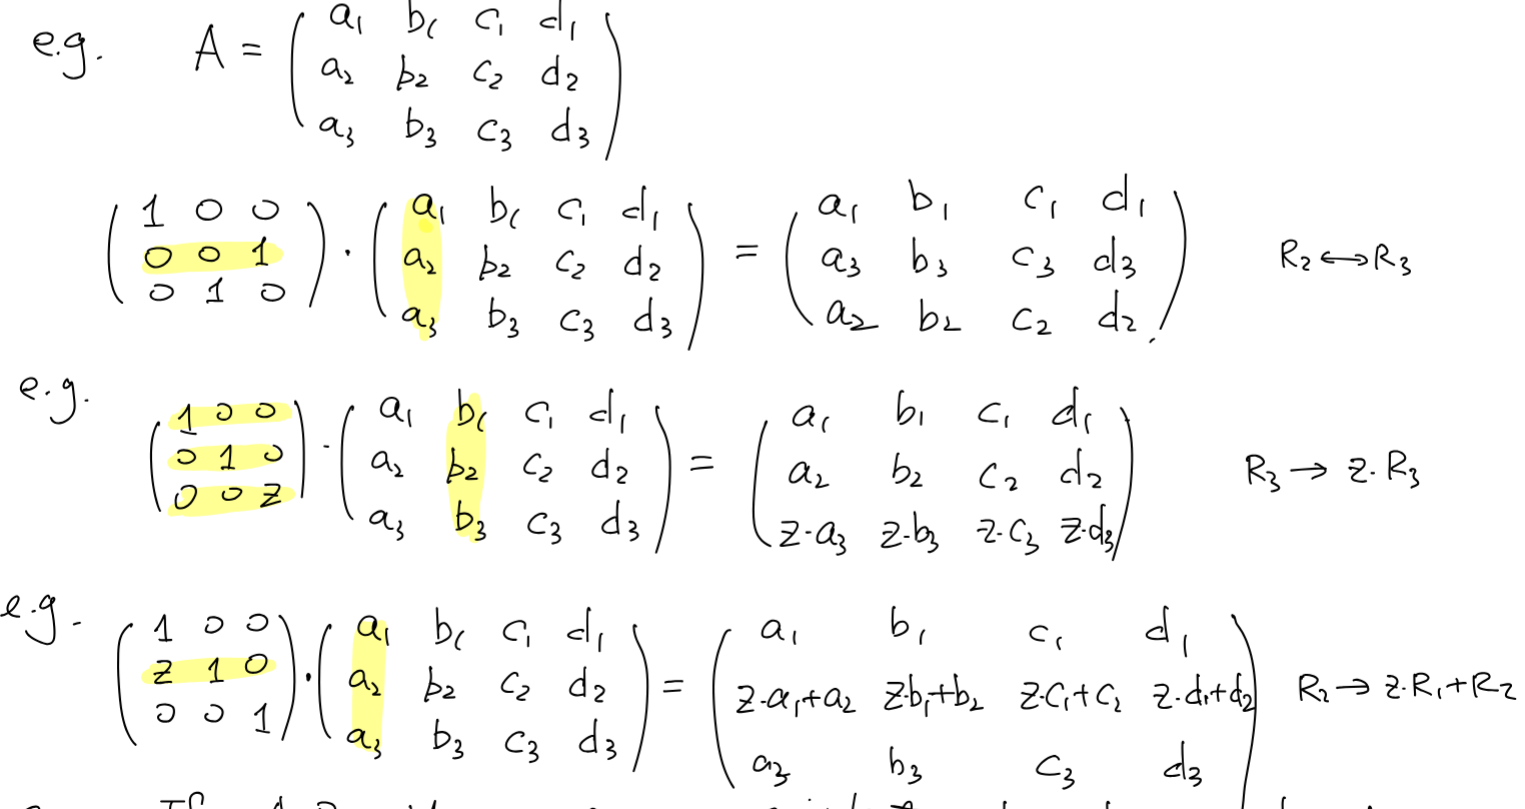 e.g. A = ( a₁ b₁ c₁ d₁
a₂ b₂ c₂ d₂
a₃ b₃ c₃ d₃ )
( 1 0 0
0 0 1
0 1 0 ) · ( a₁ b₁ c₁ d₁
a₂ b₂ c₂ d₂
a₃ b₃ c₃ d₃ ) = ( a₁ b₁ c₁ d₁
a₃ b₃ c₃ d₃
a₂ b₂ c₂ d₂ ) R₂ ↔ R₃
e.g.
( 1 0 0
0 1 0
0 0 z ) · ( a₁ b₁ c₁ d₁
a₂ b₂ c₂ d₂
a₃ b₃ c₃ d₃ ) = ( a₁ b₁ c₁ d₁
a₂ b₂ c₂ d₂
z·a₃ z·b₃ z·c₃ z·d₃ ) R₃ → z·R₃
e.g.
( 1 0 0
z 1 0
0 0 1 ) · ( a₁ b₁ c₁ d₁
a₂ b₂ c₂ d₂
a₃ b₃ c₃ d₃ ) = ( a₁ b₁ c₁ d₁
z·a₁+a₂ z·b₁+b₂ z·c₁+c₂ z·d₁+d₂
a₃ b₃ c₃ d₃ ) R₂ → z·R₁+R₂